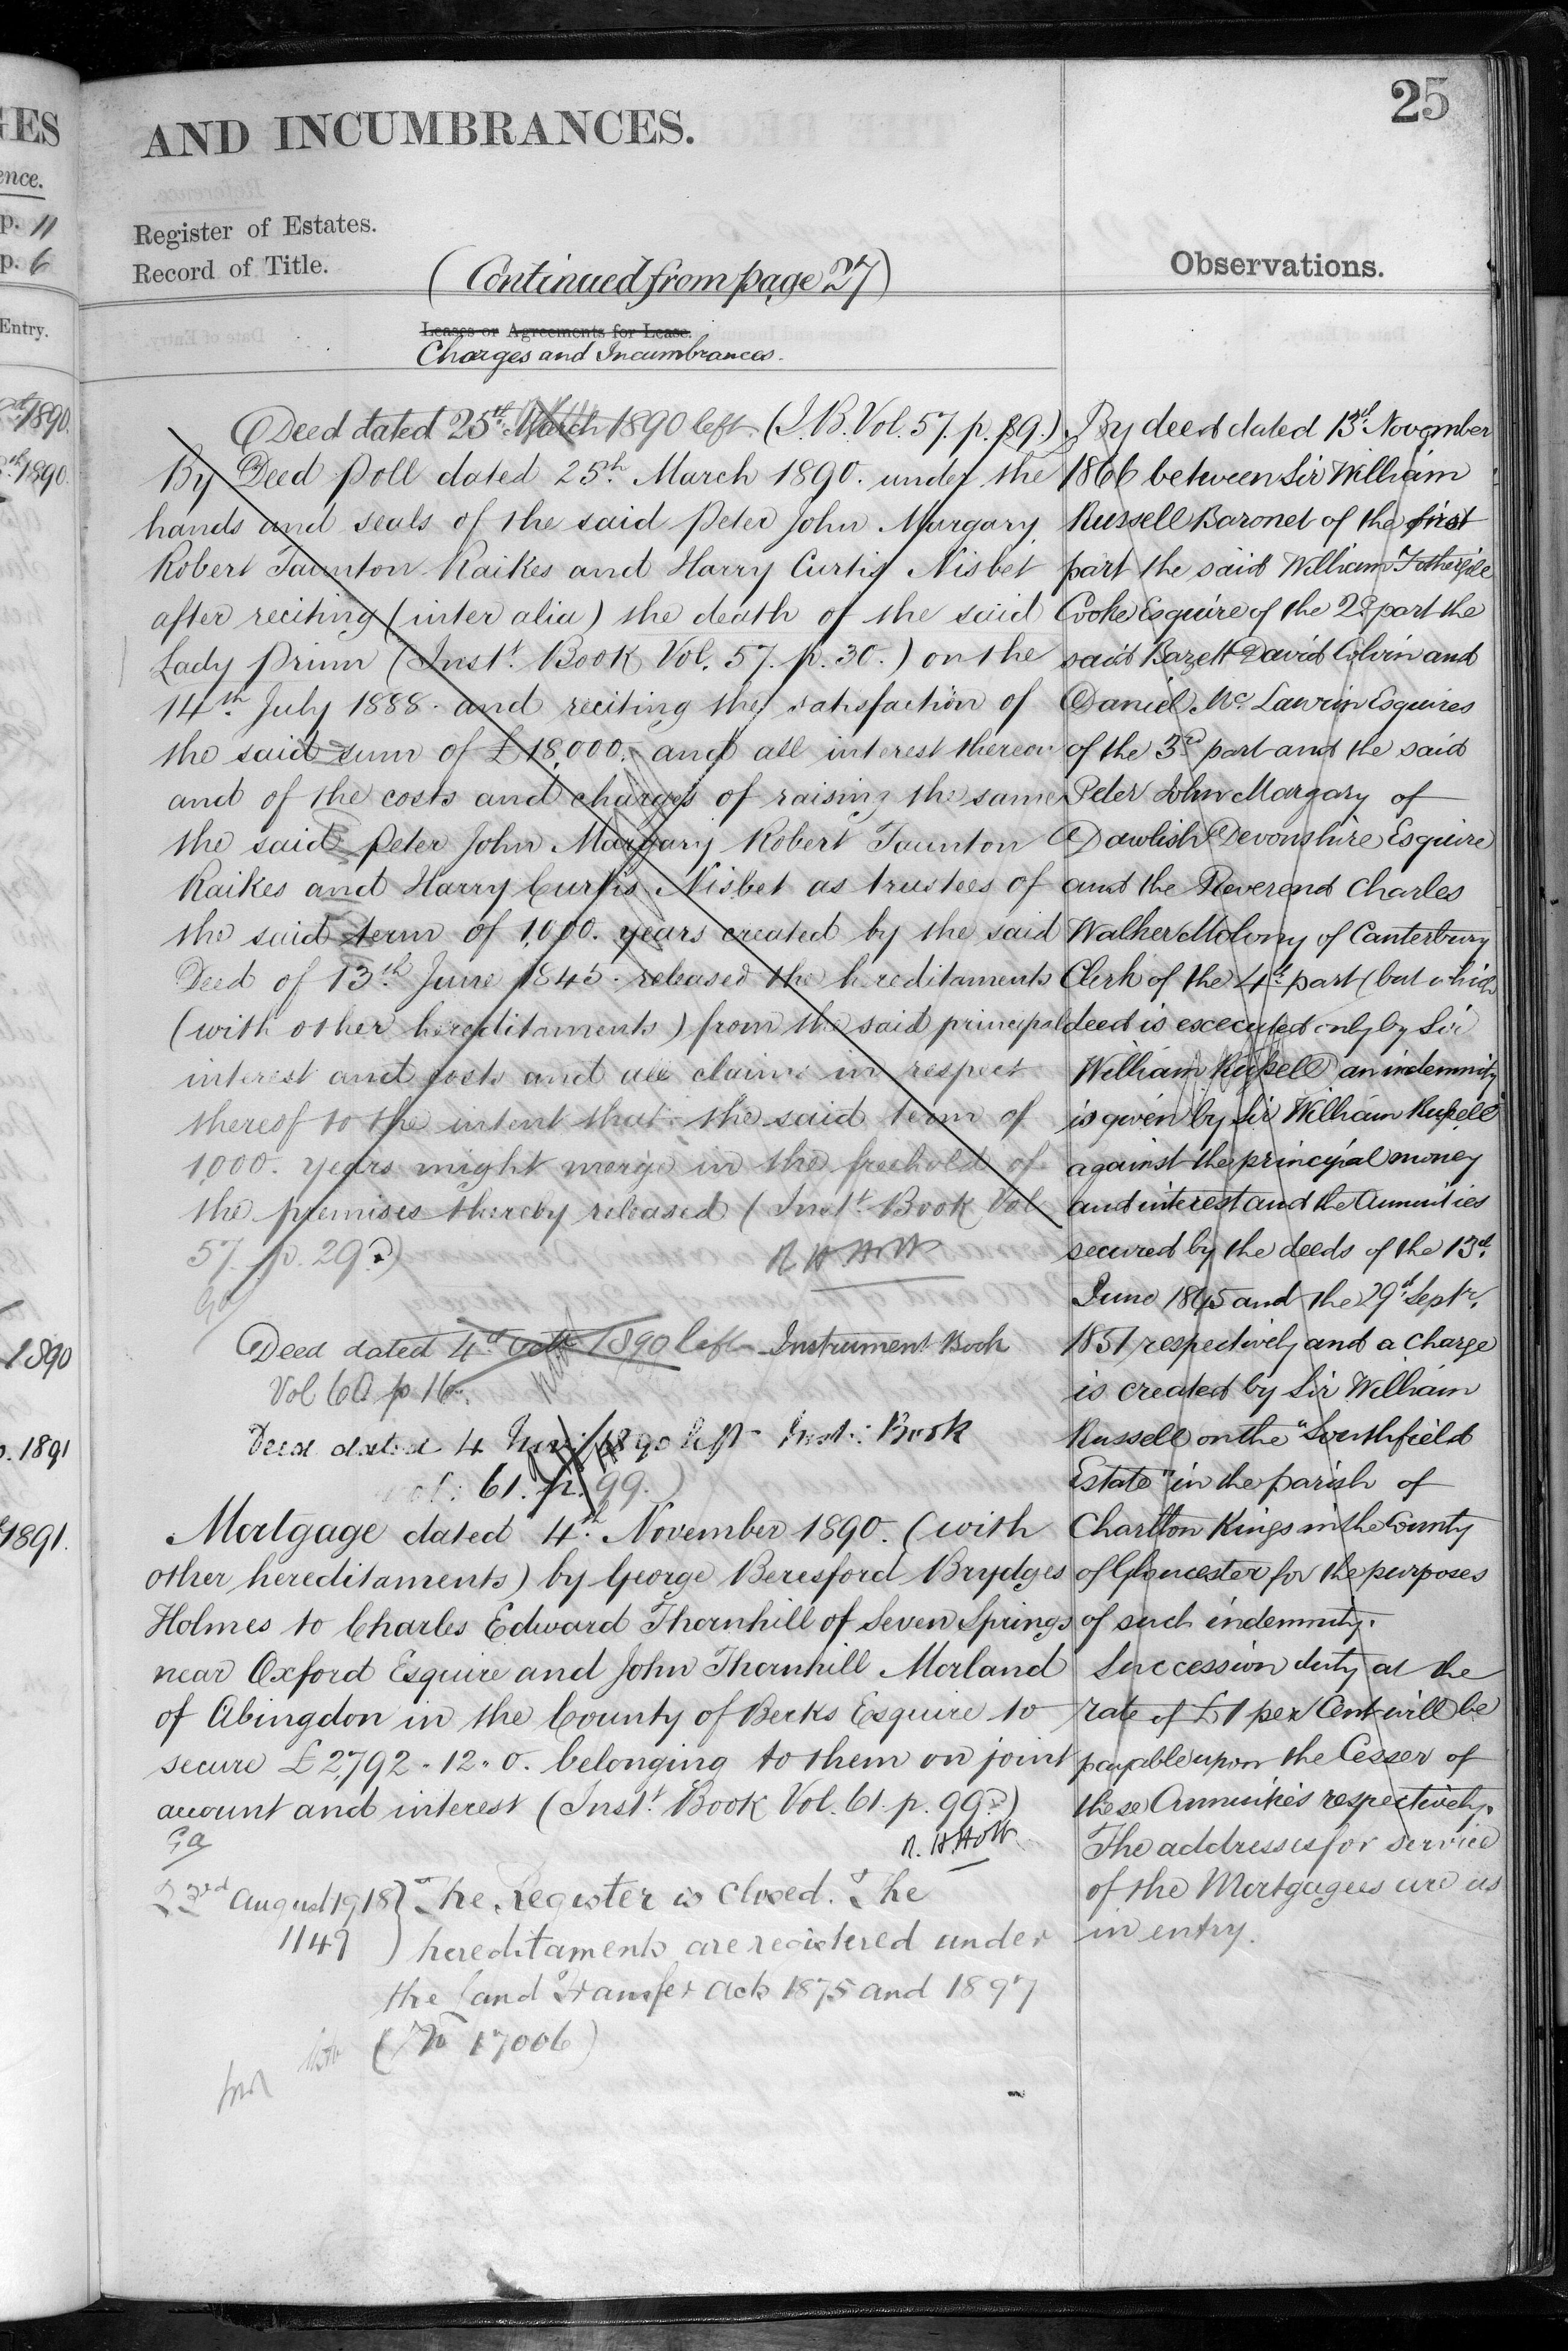 25
AND INCUMBRANCES.
GES
ence.
p. 11
p. 6
Entry.
1890.
1890.
1890
1891
1891.
Register of Estates.
Record of Title.
(Continued from page 27)
Observations.
Leases or Agreements for Lease.
Charges and Incumbrances.
Deed dated 25th March 1890 left. (I.B. Vol. 57. p. 89.)
By Deed Poll dated 25th March 1890. under the
hands and seals of the said Peter John Margary
Robert Taunton Raikes and Harry Curtis Nisbet
after reciting (inter alia) the death of the said
Lady Prinn (Inst. Book Vol. 57. p. 30.) on the
14th July 1888. and reciting the satisfaction of
the said sum of £18,000. and all interest thereon
and of the costs and charges of raising the same
the said Peter John Margary Robert Taunton
Raikes and Harry Curtis Nisbet as trustees of
the said term of 1,000. years created by the said
Deed of 13th June 1845. released the hereditaments
(with other hereditaments) from the said principal
interest and costs and all claims in respect
thereof to the intent that the said term of
1,000. years might merge in the freehold of
the premises thereby released (Inst. Book Vol
57. p. 29.)
Deed dated 4th Octr 1890 left Instrument Book
Vol 60 p 16.
Deed dated 4 Nov 1890 left Inst: Book
vol: 61. p. 99.)
Mortgage dated 4th November 1890. (with
other hereditaments) by George Beresford Brydges
Holmes to Charles Edward Thornhill of Seven Springs
near Oxford Esquire and John Thornhill Morland
of Abingdon in the County of Berks Esquire to
secure £2,792. 12. 0. belonging to them on joint
account and interest (Inst. Book Vol. 61. p. 99.)
23rd August 1918 } The Register is closed. The
1149 ) hereditaments are registered under
the Land Transfer Acts 1875 and 1897
(No 17006)
By deed dated 13th November
1866 between Sir William
Russell Baronet of the first
part the said William Fothergile
Cooke Esquire of the 2d part the
said Bazett David Colvin and
Daniel Mc Lawrin Esquires
of the 3d part and the said
Peter John Margary of
Dawlish Devonshire Esquire
and the Reverend Charles
Walker Molony of Canterbury
Clerk of the 4th part (but which
deed is executed only by Sir
William Russell) an indemnity
is given by Sir William Russell
against the principal money
and interest and the Annuities
secured by the deeds of the 13th
June 1845 and the 29th Septr.
1851 respectively and a charge
is created by Sir William
Russell on the "Southfield
Estate" in the parish of
Charlton Kings in the County
of Gloucester for the purposes
of such indemnity.
Succession duty at the
rate of £1 per Cent will be
payable upon the Cesser of
these Annuities respectively.
The addresses for service
of the Mortgagees are as
in entry.